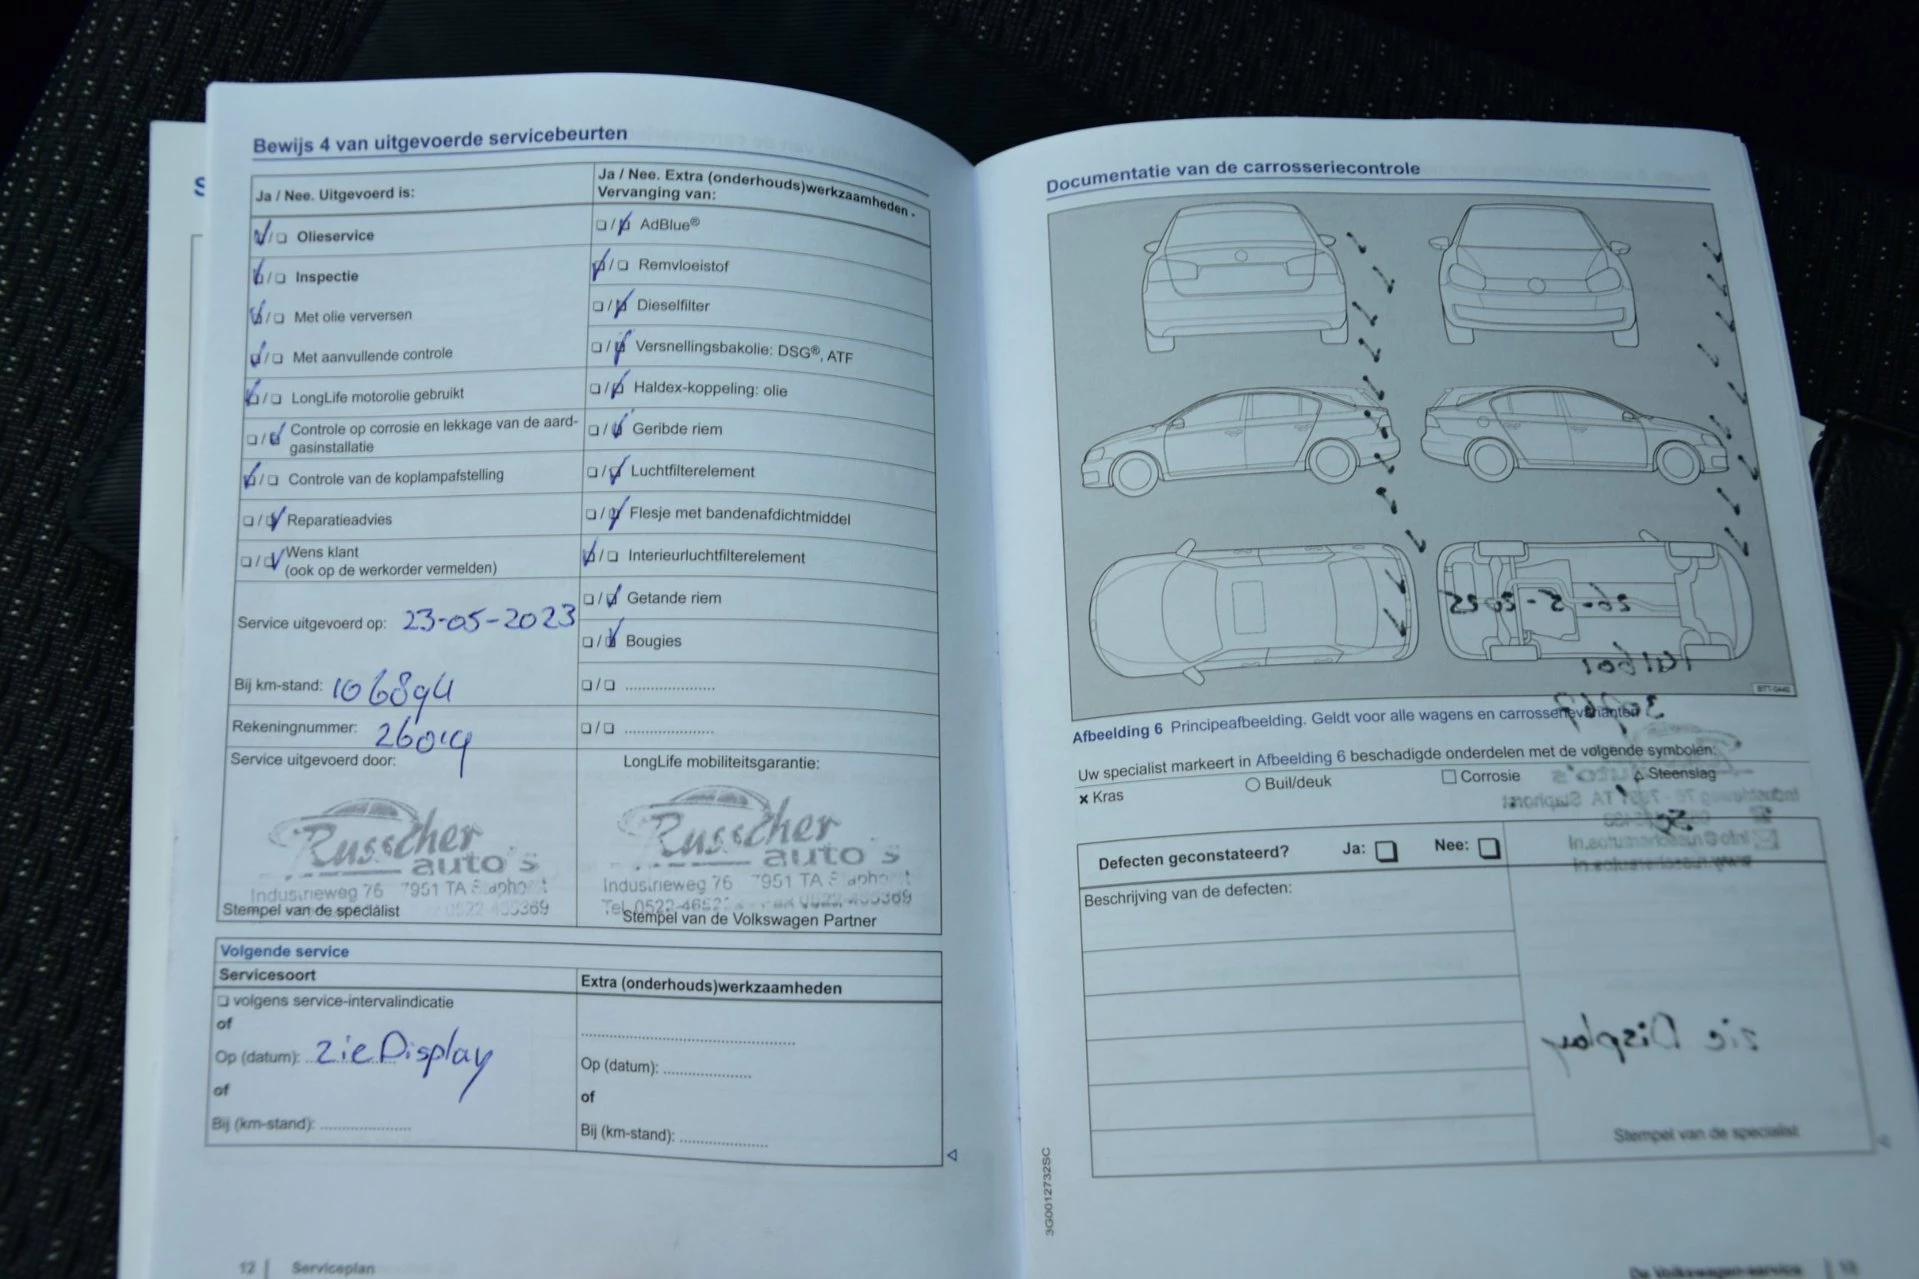 Bewijs 4 van uitgevoerde servicebeurten
Ja / Nee. Uitgevoerd is:
Olieservice
Inspectie
Met olie verversen
Met aanvullende controle
LongLife motorolie gebruikt
Controle op corrosie en lekkage van de aard-
gasinstallatie
Controle van de koplampafstelling
Reparatieadvies
Wens klant
(ook op de werkorder vermelden)
Service uitgevoerd op: 23-05-2023
Bij km-stand: 106894
Rekeningnummer: 26019
Service uitgevoerd door:
Russcher
auto's
Industrieweg 76 7951 TA Staphorst
Stempel van de specialist
Ja / Nee. Extra (onderhouds)werkzaamheden -
Vervanging van:
AdBlue®
Remvloeistof
Dieselfilter
Versnellingsbakolie: DSG®, ATF
Haldex-koppeling: olie
Geribde riem
Luchtfilterelement
Flesje met bandenafdichtmiddel
Interieurluchtfilterelement
Getande riem
Bougies
LongLife mobiliteitsgarantie:
Russcher
auto's
Industrieweg 76 7951 TA Staphorst
Stempel van de Volkswagen Partner
Volgende service
Servicesoort
volgens service-intervalindicatie
of
Op (datum): zie Display
of
Bij (km-stand):
Extra (onderhouds)werkzaamheden
Op (datum):
of
Bij (km-stand):
12 | Serviceplan
Documentatie van de carrosseriecontrole
Afbeelding 6 Principeafbeelding. Geldt voor alle wagens en carrosserievarianten
Uw specialist markeert in Afbeelding 6 beschadigde onderdelen met de volgende symbolen:
Kras
Buil/deuk
Corrosie
Steenslag
Defecten geconstateerd? Ja: Nee:
Beschrijving van de defecten:
zie Display
Stempel van de specialist
3G0012732SC
De Volkswagen-service | 13